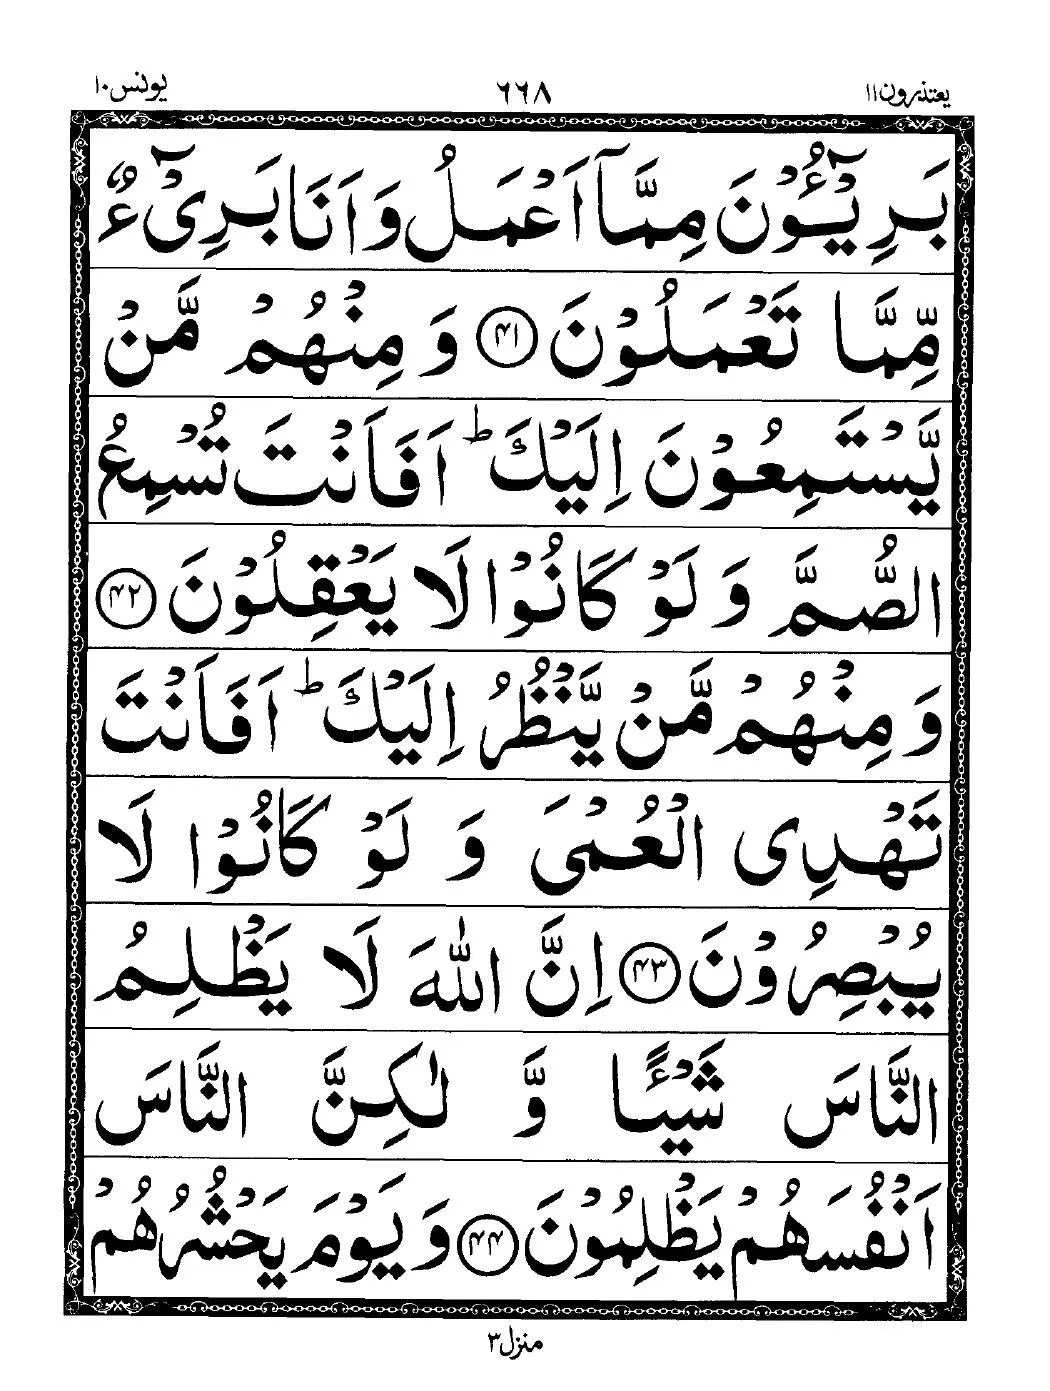 یعتذرون۱۱ ٦٦٨ یونس۱۰
بَرِیْٓـُٔوْنَ مِمَّاۤ اَعْمَلُ وَ اَنَا بَرِیْٓءٌ
مِّمَّا تَعْمَلُوْنَ ﴿۴۱﴾ وَ مِنْهُمْ مَّنْ
یَّسْتَمِعُوْنَ اِلَیْكَ ؕ اَفَاَنْتَ تُسْمِعُ
الصُّمَّ وَ لَوْ كَانُوْا لَا یَعْقِلُوْنَ ﴿۴۲﴾
وَ مِنْهُمْ مَّنْ یَّنْظُرُ اِلَیْكَ ؕ اَفَاَنْتَ
تَهْدِی الْعُمْیَ وَ لَوْ كَانُوْا لَا
یُبْصِرُوْنَ ﴿۴۳﴾ اِنَّ اللّٰهَ لَا یَظْلِمُ
النَّاسَ شَیْـًٔا وَّ لٰكِنَّ النَّاسَ
اَنْفُسَهُمْ یَظْلِمُوْنَ ﴿۴۴﴾ وَ یَوْمَ یَحْشُرُهُمْ
منزل۳